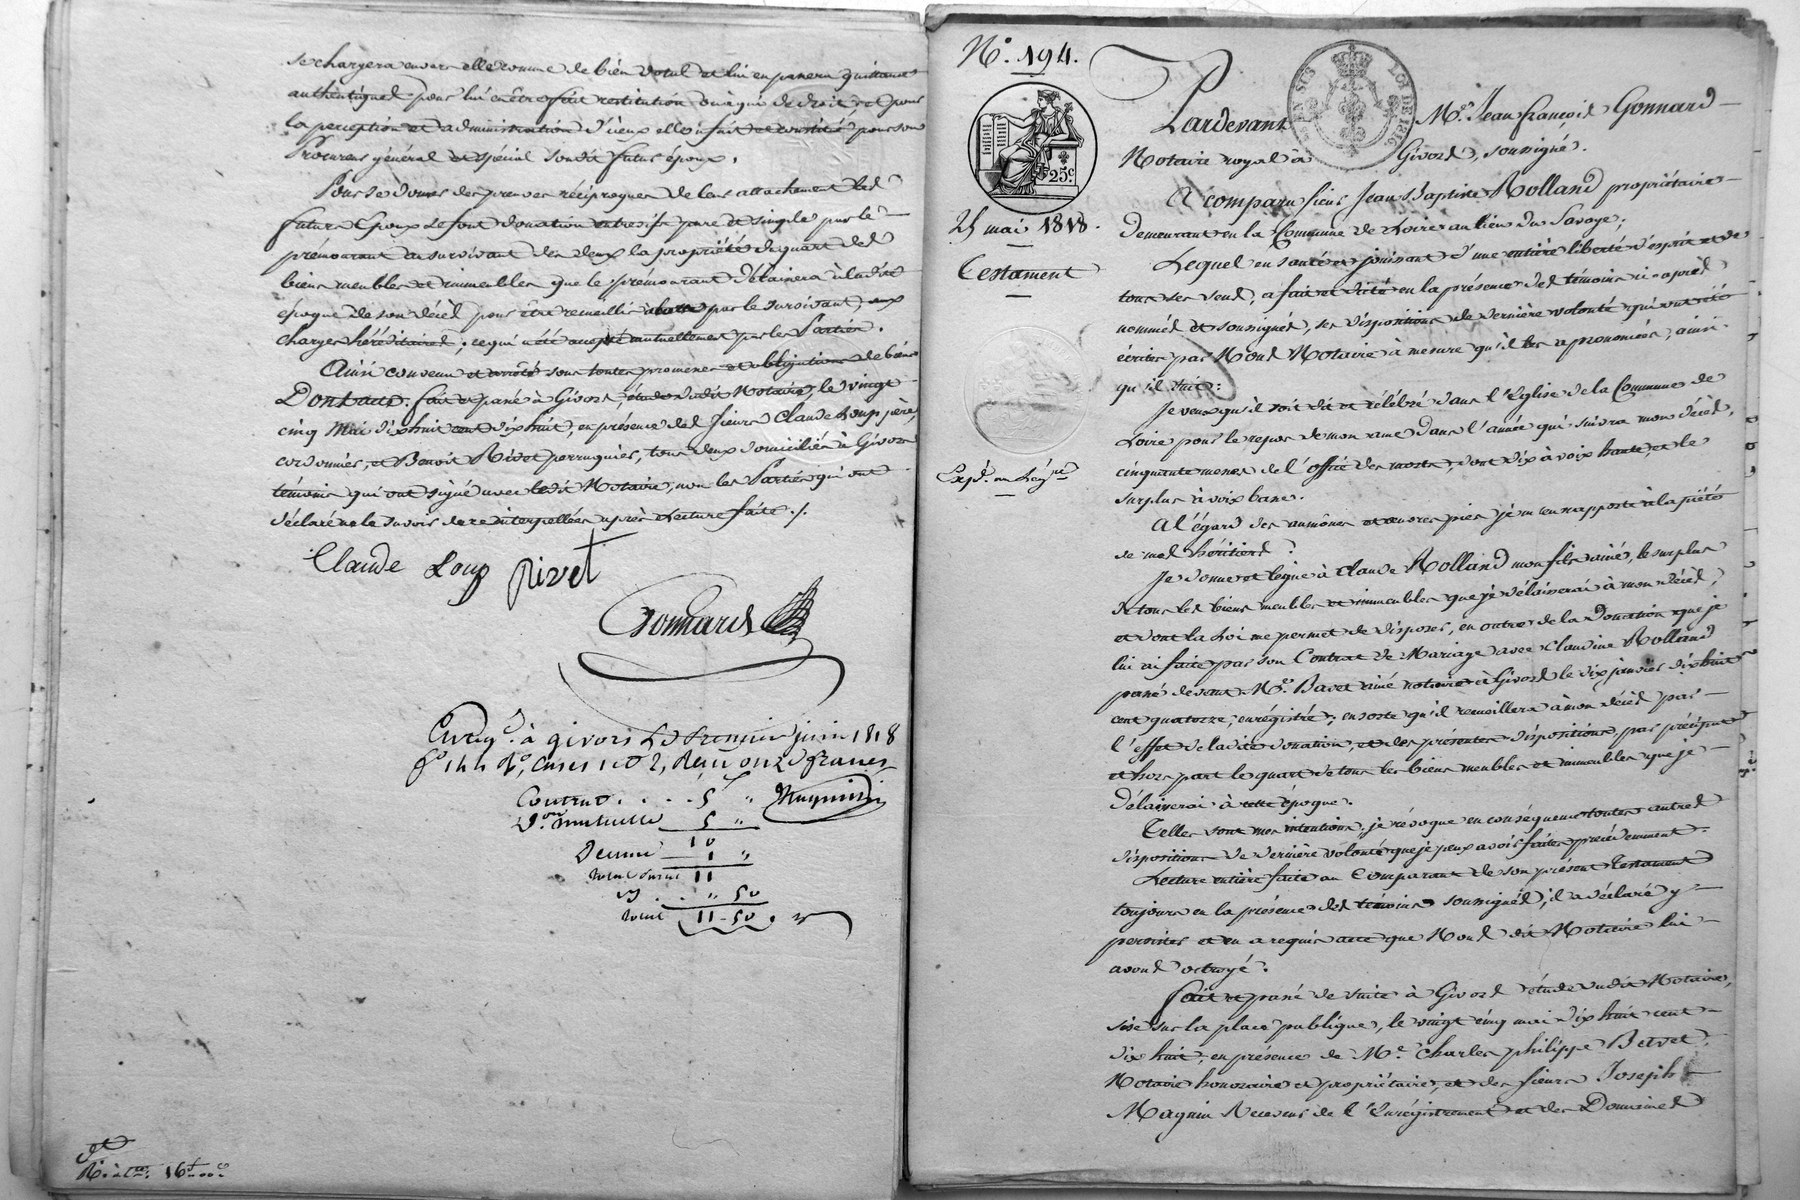 se chargera envers elle comme de bien dotal et lui en passera quittance
authentique pour lui en être fait restitution ou à qui de droit et pour
la perception et administration d'iceux elle infait et constitué pour son
Procureur général et spécial son dit futur époux.
Pour se donner des preuves réciproques de leur attachement les d.
futurs Epoux se font donation entre vifs pure et simple par le
prémourant au survivant des deux la propriété du quart des
biens meubles et immeubles que le prémourant délaissera à ladite
époque de son décès pour être recueilli par le survivant, aux
charges héréditaires; ce qui a été accepté mutuellement par les Parties.
Ainsi convenu et arrêté sous toutes promesses et obligations de biens
Dont acte: fait et passé à Givors, étude dudit Notaire, le vingt
cinq Mai dix huit cent dix huit, en présence des sieurs Claude Loup père,
cordonnier, et Benoit Rivet perruquier, tous deux domiciliés à Givors
témoins qui ont signé avec ledit Notaire, non les Parties qui ont
déclaré ne le savoir de ce interpellées après Lecture faite ./.
Claude Loup Rivet
Gonnard
Enreg. à givors le Premier juin 1818
f° 144 V°, cases 1 et 2, Reçu onze francs
Contrat . . . . 5 "
D.on mutuelle 5 "
10
Decime 1 "
11
" 50
total 11 - 50
16
N°. 194.
25.c
LOI DE 1816
25 mai 1818.
Testament
Pardevant M.e Jean françois Gonnard
Notaire royal à Givors, soussigné.
A comparu sieur Jean Baptiste Rolland propriétaire
demeurant en la Commune de Loire au lieu du Savoye;
Lequel en santé et jouissant d'une entière liberté d'esprit et de
tous ses sens, a fait et dicté en la présence des témoins ci-après
nommés et soussignés, ses dispositions de dernière volonté qui ont été
écrites par Nous Notaire à mesure qu'il les a prononcées, ainsi
qu'il suit:
Je veux qu'il soit dit et célébré dans l'Eglise de la Commune de
Loire pour le repos de mon ame dans l'année qui suivra mon décès,
cinquante messes de l'office des morts, dont dix à voix haute, et le
surplus à voix basse.
A l'égard des aumônes et œuvres pies je m'en rapporte à la piété
de mes héritiers.
Je donne et lègue à Claude Rolland mon fils ainé, le surplus
de tous les biens meubles et immeubles que je délaisserai à mon décès,
et dont la Loi me permet de disposer, en outre de la Donation que je
lui ai faite par son Contrat de Mariage avec Claudine Rolland
passé devant M.e Bavet ainé notaire à Givors le dix janvier dix huit
cent quatorze, enrégistré; ensorte qu'il recueillera à mon décès par
l'effet de ladite donation, et des présentes dispositions, par préciput
et hors part le quart de tous les biens meubles et immeubles que je
délaisserai à cette époque.
Telles sont mes intentions; je révoque en conséquence toutes autres
dispositions de dernière volonté que je peux avoir faites précédemment.
Lecture entière faite au Comparant de son présent Testament
toujours en la présence des témoins soussignés, il a déclaré y
persister et en a requis acte que Nous dit Notaire lui
avons octroyé.
fait et passé de suite à Givors étude dudit Notaire,
sise sur la place publique, le vingt cinq mai dix huit cent
dix huit, en présence de M.e Charles philippe Betvet,
Notaire honoraire et propriétaire, et des sieurs Joseph
Magnin Receveur de l'Enrégistrement et des Domaines